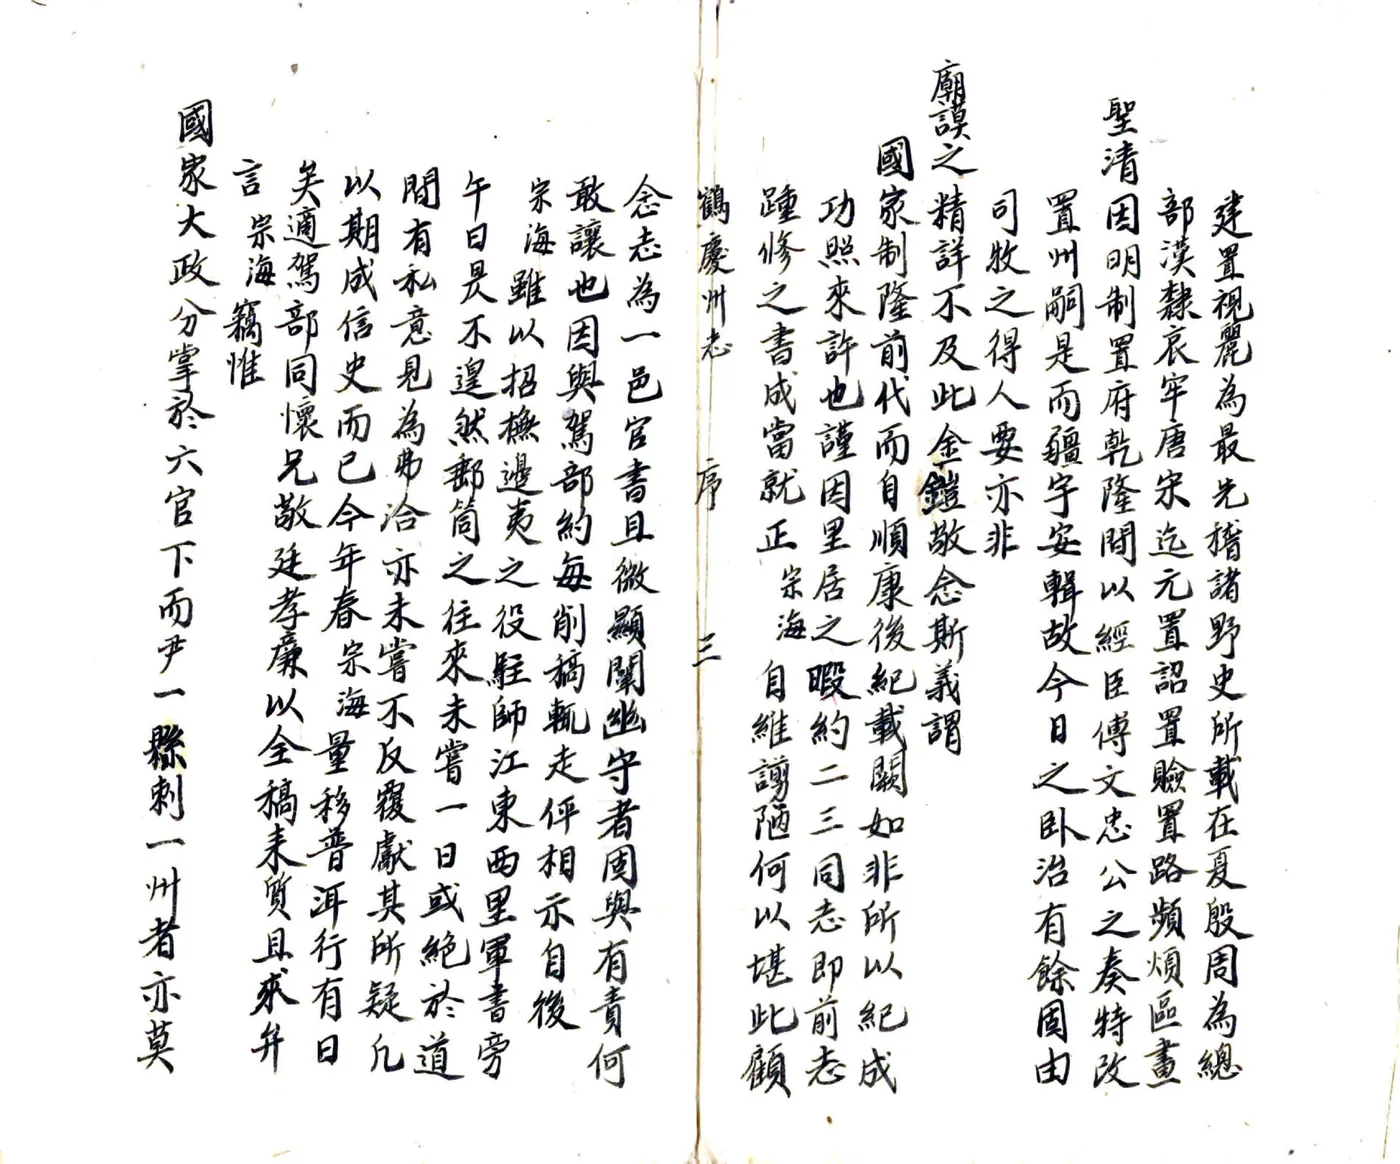 建置視麗為最先稽諸野史所載在夏殷周為總
部漢隸哀牢唐宋迄元置詔置瞼置路頻煩區畫
聖清因明制置府乾隆間以經臣傅文忠公之奏特改
置州嗣是而疆宇安輯故今日之卧治有餘固由
司牧之得人要亦非
廟謨之精詳不及此金鎧敬念斯義謂
國家制隆前代而自順康後紀載闕如非所以紀成
功照來許也謹因里居之暇約二三同志即前志
踵修之書成當就正宗海自維謭陋何以堪此顧
鶴慶州志 序 三
念志為一邑官書且微顯闡幽守者固與有責何
敢讓也因與駕部約每削稿輒走伻相示自後
宗海雖以招撫邊夷之役駐師江東西里軍書旁
午日昃不遑然郵筒之往來未嘗一日或絕於道
間有私意見為弗洽亦未嘗不反覆獻其所疑凡
以期成信史而已今年春宗海量移普洱行有日
矣適駕部同懷兄敬廷孝廉以全稿來質且求弁
言宗海竊惟
國家大政分掌於六官下而尹一縣刺一州者亦莫